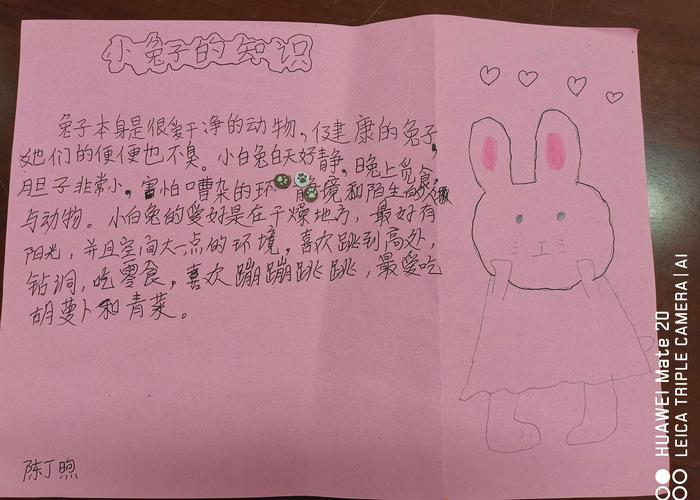 小兔子的知识
兔子本身是很爱干净的动物，健康的兔子，
她们的便便也不臭。小白兔白天好静，晚上觅食，
胆子非常小，害怕嘈杂的环境和陌生的人
与动物。小白兔的爱好是在干燥地方，最好有
阳光，并且空间大一点的环境，喜欢跳到高处，
钻洞，吃零食，喜欢蹦蹦跳跳，最爱吃
胡萝卜和青菜。
陈丁煦
HUAWEI Mate 20
LEICA TRIPLE CAMERA | AI